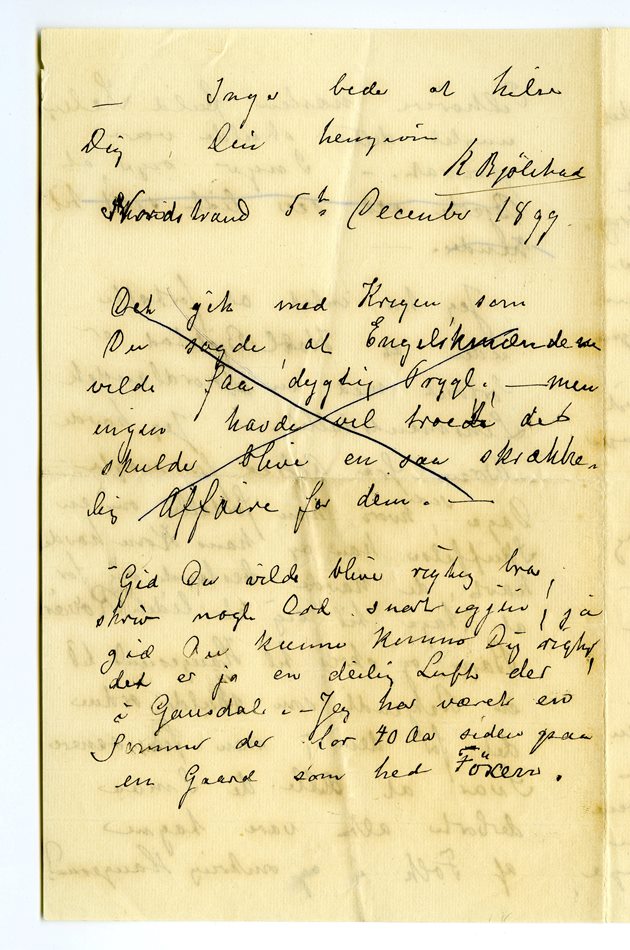 — Inga beder at hilse
Dig, Din hengivne
K Bjölstad
Nordstrand 5te December 1899.
Det gik med Krigen som
Du sagde, at Engelskmændene
vilde faa dygtig Prygl. — men
ingen havde vel troet det
skulde blive en saa skrække-
lig Affaire for dem. —
Gid Du vilde blive rigtig bra,
skriv nogle Ord snart igjen, ja
gid Du kunne komme Dig rigtig,
det er jo en deilig Luft der
i Gausdal. — Jeg har været en
Sommer der for 40 Aar siden paa
en Gaard som hed